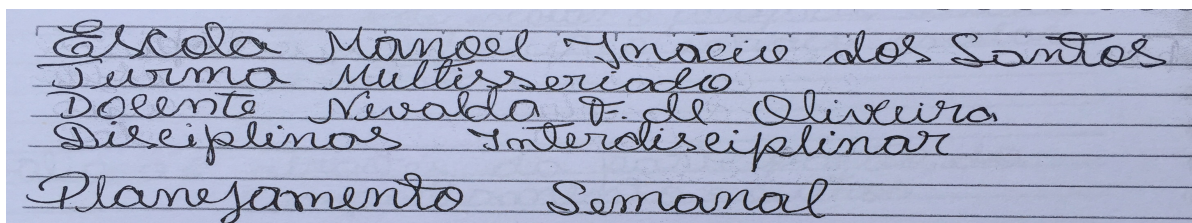 Escola Manoel Inácio dos Santos
Turma Multisseriado
Docente Nivalda F. de Oliveira
Disciplinas Interdisciplinar
Planejamento Semanal